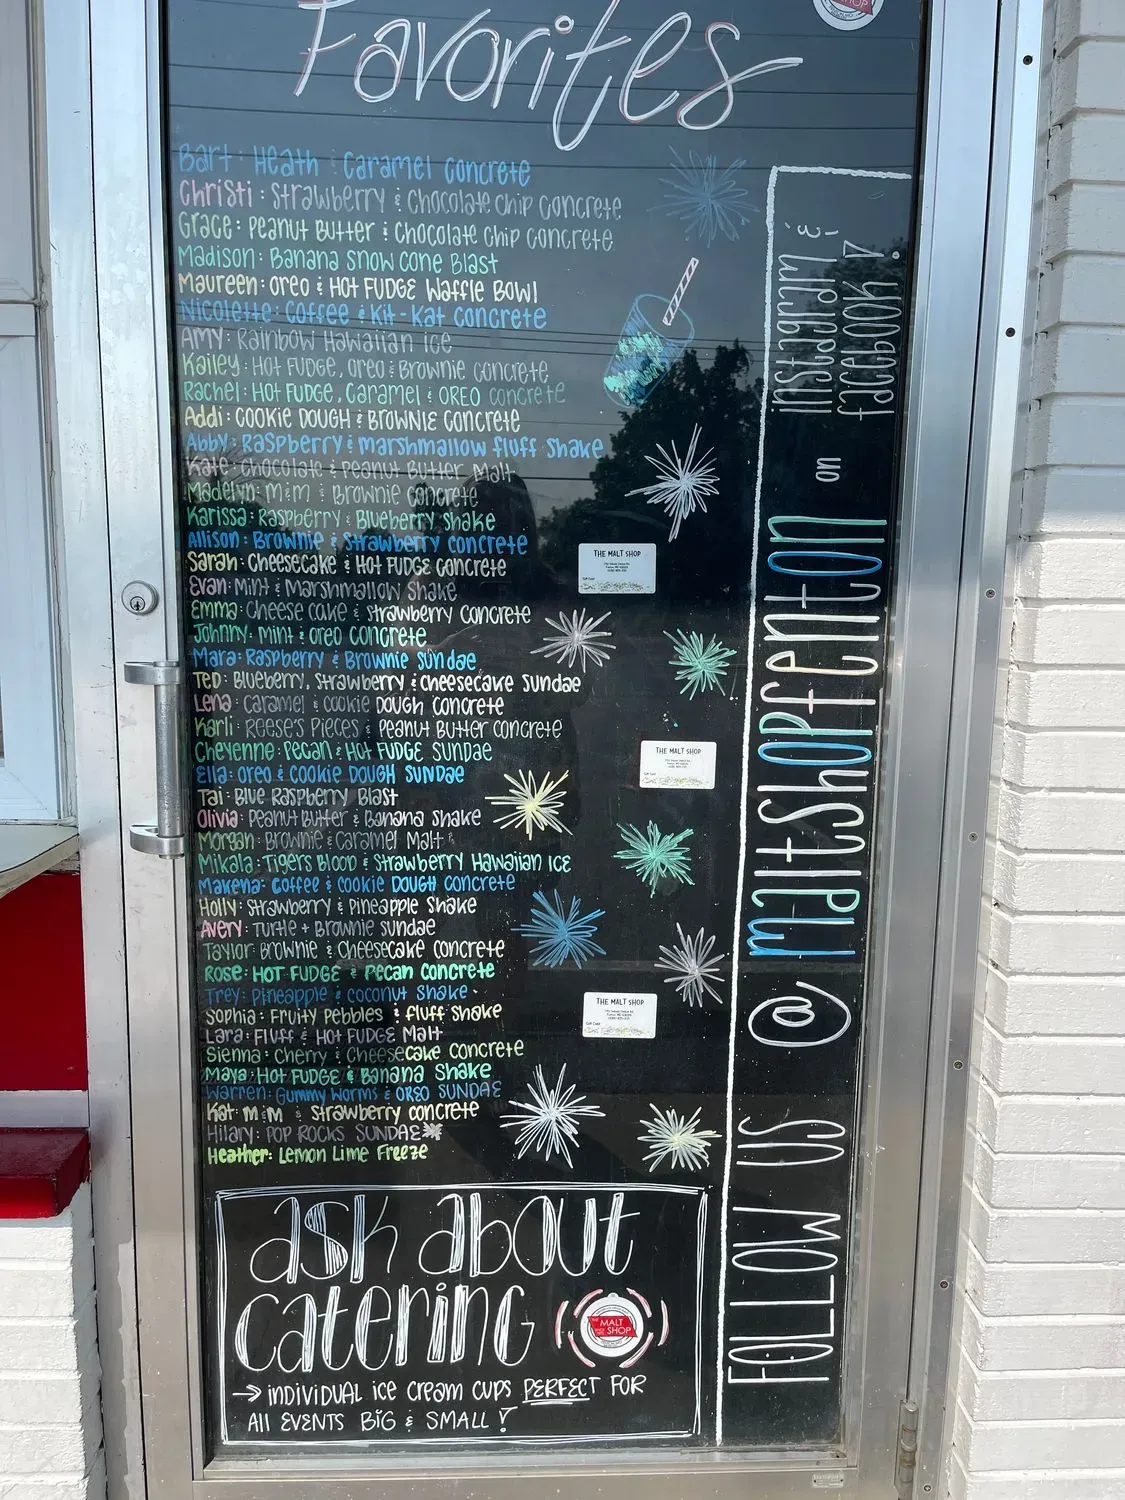 Favorites
Bart: Heath & Caramel Concrete
Christi: Strawberry & Chocolate Chip Concrete
Grace: Peanut Butter & Chocolate Chip Concrete
Madison: Banana Snow Cone Blast
Maureen: Oreo & HOT FUDGE Waffle Bowl
Nicolette: Coffee & Kit-Kat Concrete
Amy: Rainbow Hawaiian Ice
Kailey: HOT FUDGE, Oreo & Brownie Concrete
Rachel: HOT FUDGE, Caramel & OREO Concrete
Addi: COOKIE DOUGH & BROWNIE Concrete
Abby: Raspberry & Marshmallow Fluff Shake
Kate: Chocolate & Peanut Butter Malt
Madelyn: M&M & Brownie Concrete
Karissa: Raspberry & Blueberry Shake
Allison: Brownie & Strawberry Concrete
Sarah: Cheesecake & HOT FUDGE Concrete
Evan: Mint & Marshmallow Shake
Emma: Cheese cake & Strawberry Concrete
Johnny: Mint & Oreo Concrete
Mara: Raspberry & Brownie Sundae
Ted: Blueberry, Strawberry & Cheesecake Sundae
Lena: Caramel & Cookie Dough Concrete
Karli: Reese's Pieces & Peanut Butter Concrete
Cheyenne: Pecan & HOT FUDGE SUNDAE
Ella: Oreo & Cookie DOUGH SUNDAE
Tai: Blue Raspberry Blast
Olivia: Peanut Butter & Banana Shake
Morgan: Brownie & Caramel Malt
Mikala: Tigers Blood & Strawberry Hawaiian ICE
Makena: Coffee & Cookie DOUGH Concrete
Holly: Strawberry & Pineapple Shake
Avery: Turtle + Brownie Sundae
Taylor: Brownie & Cheesecake Concrete
Rose: HOT FUDGE & Pecan Concrete
Trey: Pineapple & Coconut Shake
Sophia: Fruity Pebbles & Fluff Shake
Lara: Fluff & HOT FUDGE Malt
Sienna: Cherry & Cheesecake Concrete
Maya: HOT FUDGE & Banana Shake
Warren: Gummy Worms & OREO SUNDAE
Kat: M&M & Strawberry Concrete
Hilary: POP ROCKS SUNDAE
Heather: Lemon Lime Freeze
THE MALT SHOP
THE MALT SHOP
THE MALT SHOP
FOLLOW US @maltshopfenton on
Instagram &
Facebook!
ask about
catering
THE MALT SHOP
INDIVIDUAL ice cream cups PERFECT FOR
All EVENTS BIG & SMALL!